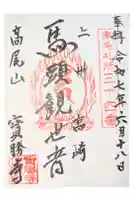 奉拝 令和七年六月十八日
上州 高崎
馬頭観世音
高尾山
實勝寺